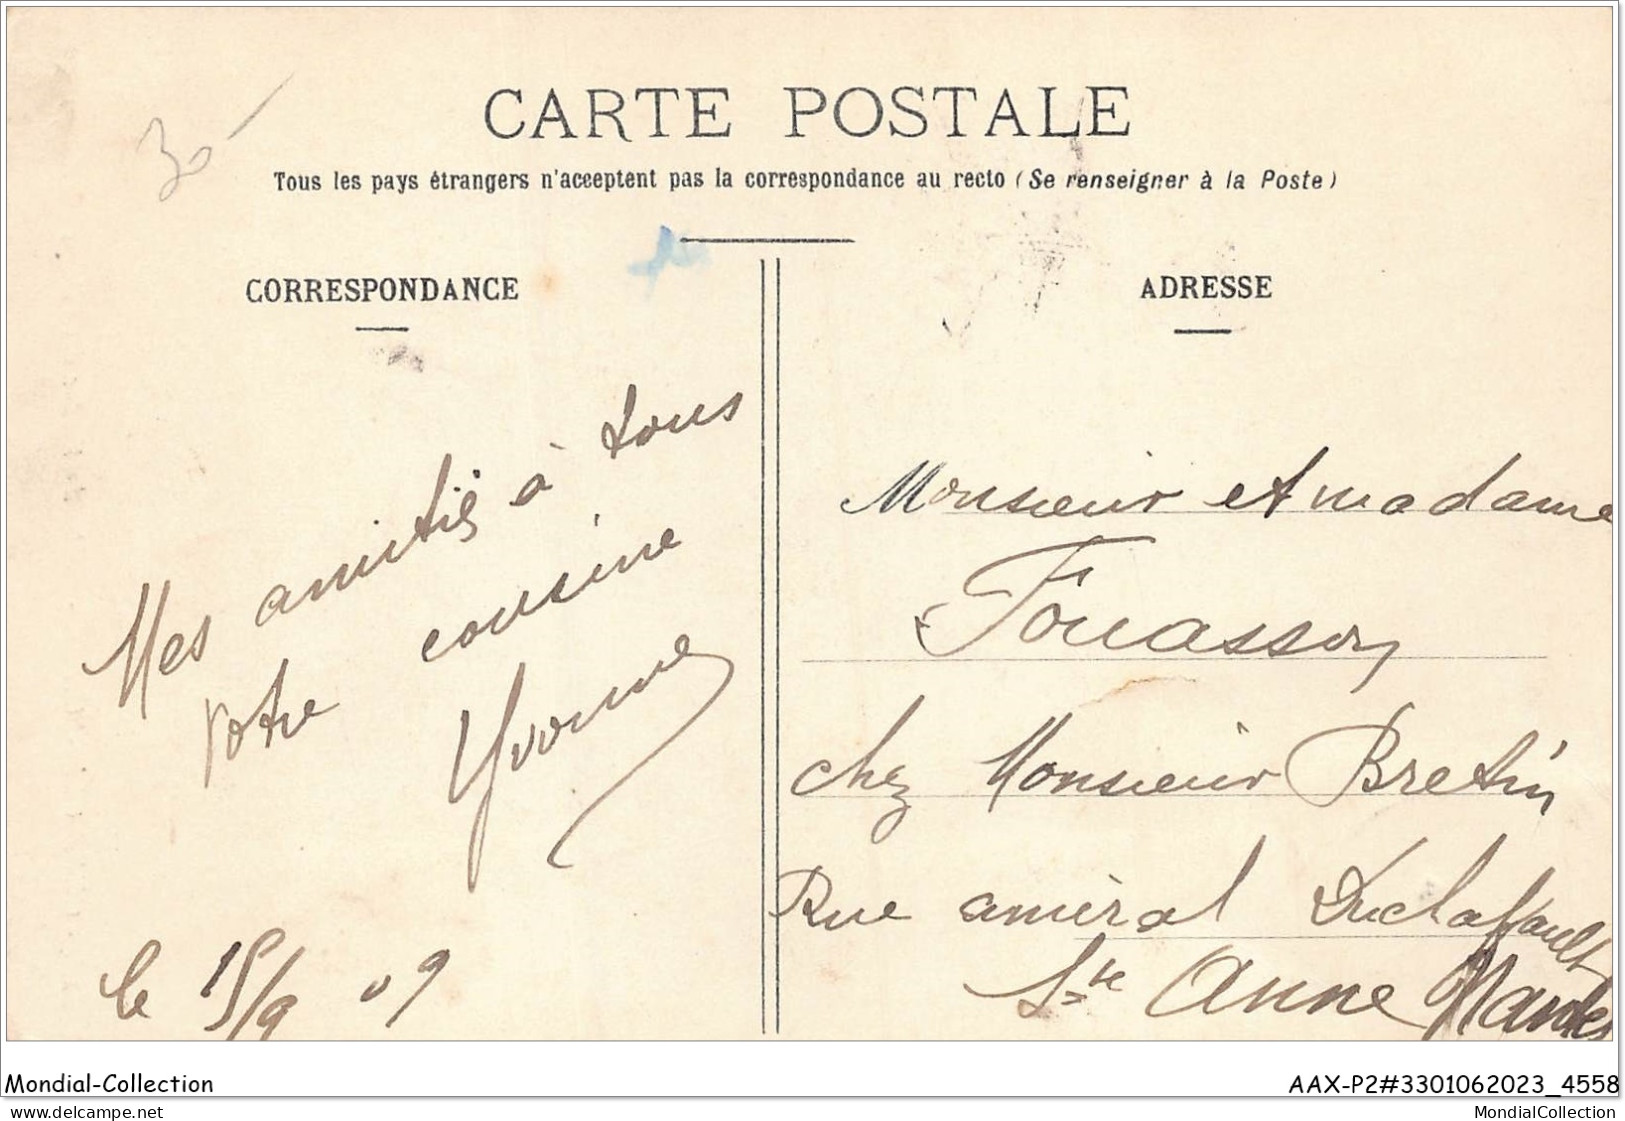 30
CARTE POSTALE
Tous les pays étrangers n'acceptent pas la correspondance au recto (Se renseigner à la Poste)
CORRESPONDANCE
Mes amitiés à tous
votre cousine
Yvonne
le 15/9 09
ADRESSE
Monsieur et madame
Fouasson
chez Monsieur Bretin
Rue amiral Duchaffault
Ste Anne Nantes
Mondial-Collection
AAX-P2#3301062023_4558
www.delcampe.net
MondialCollection